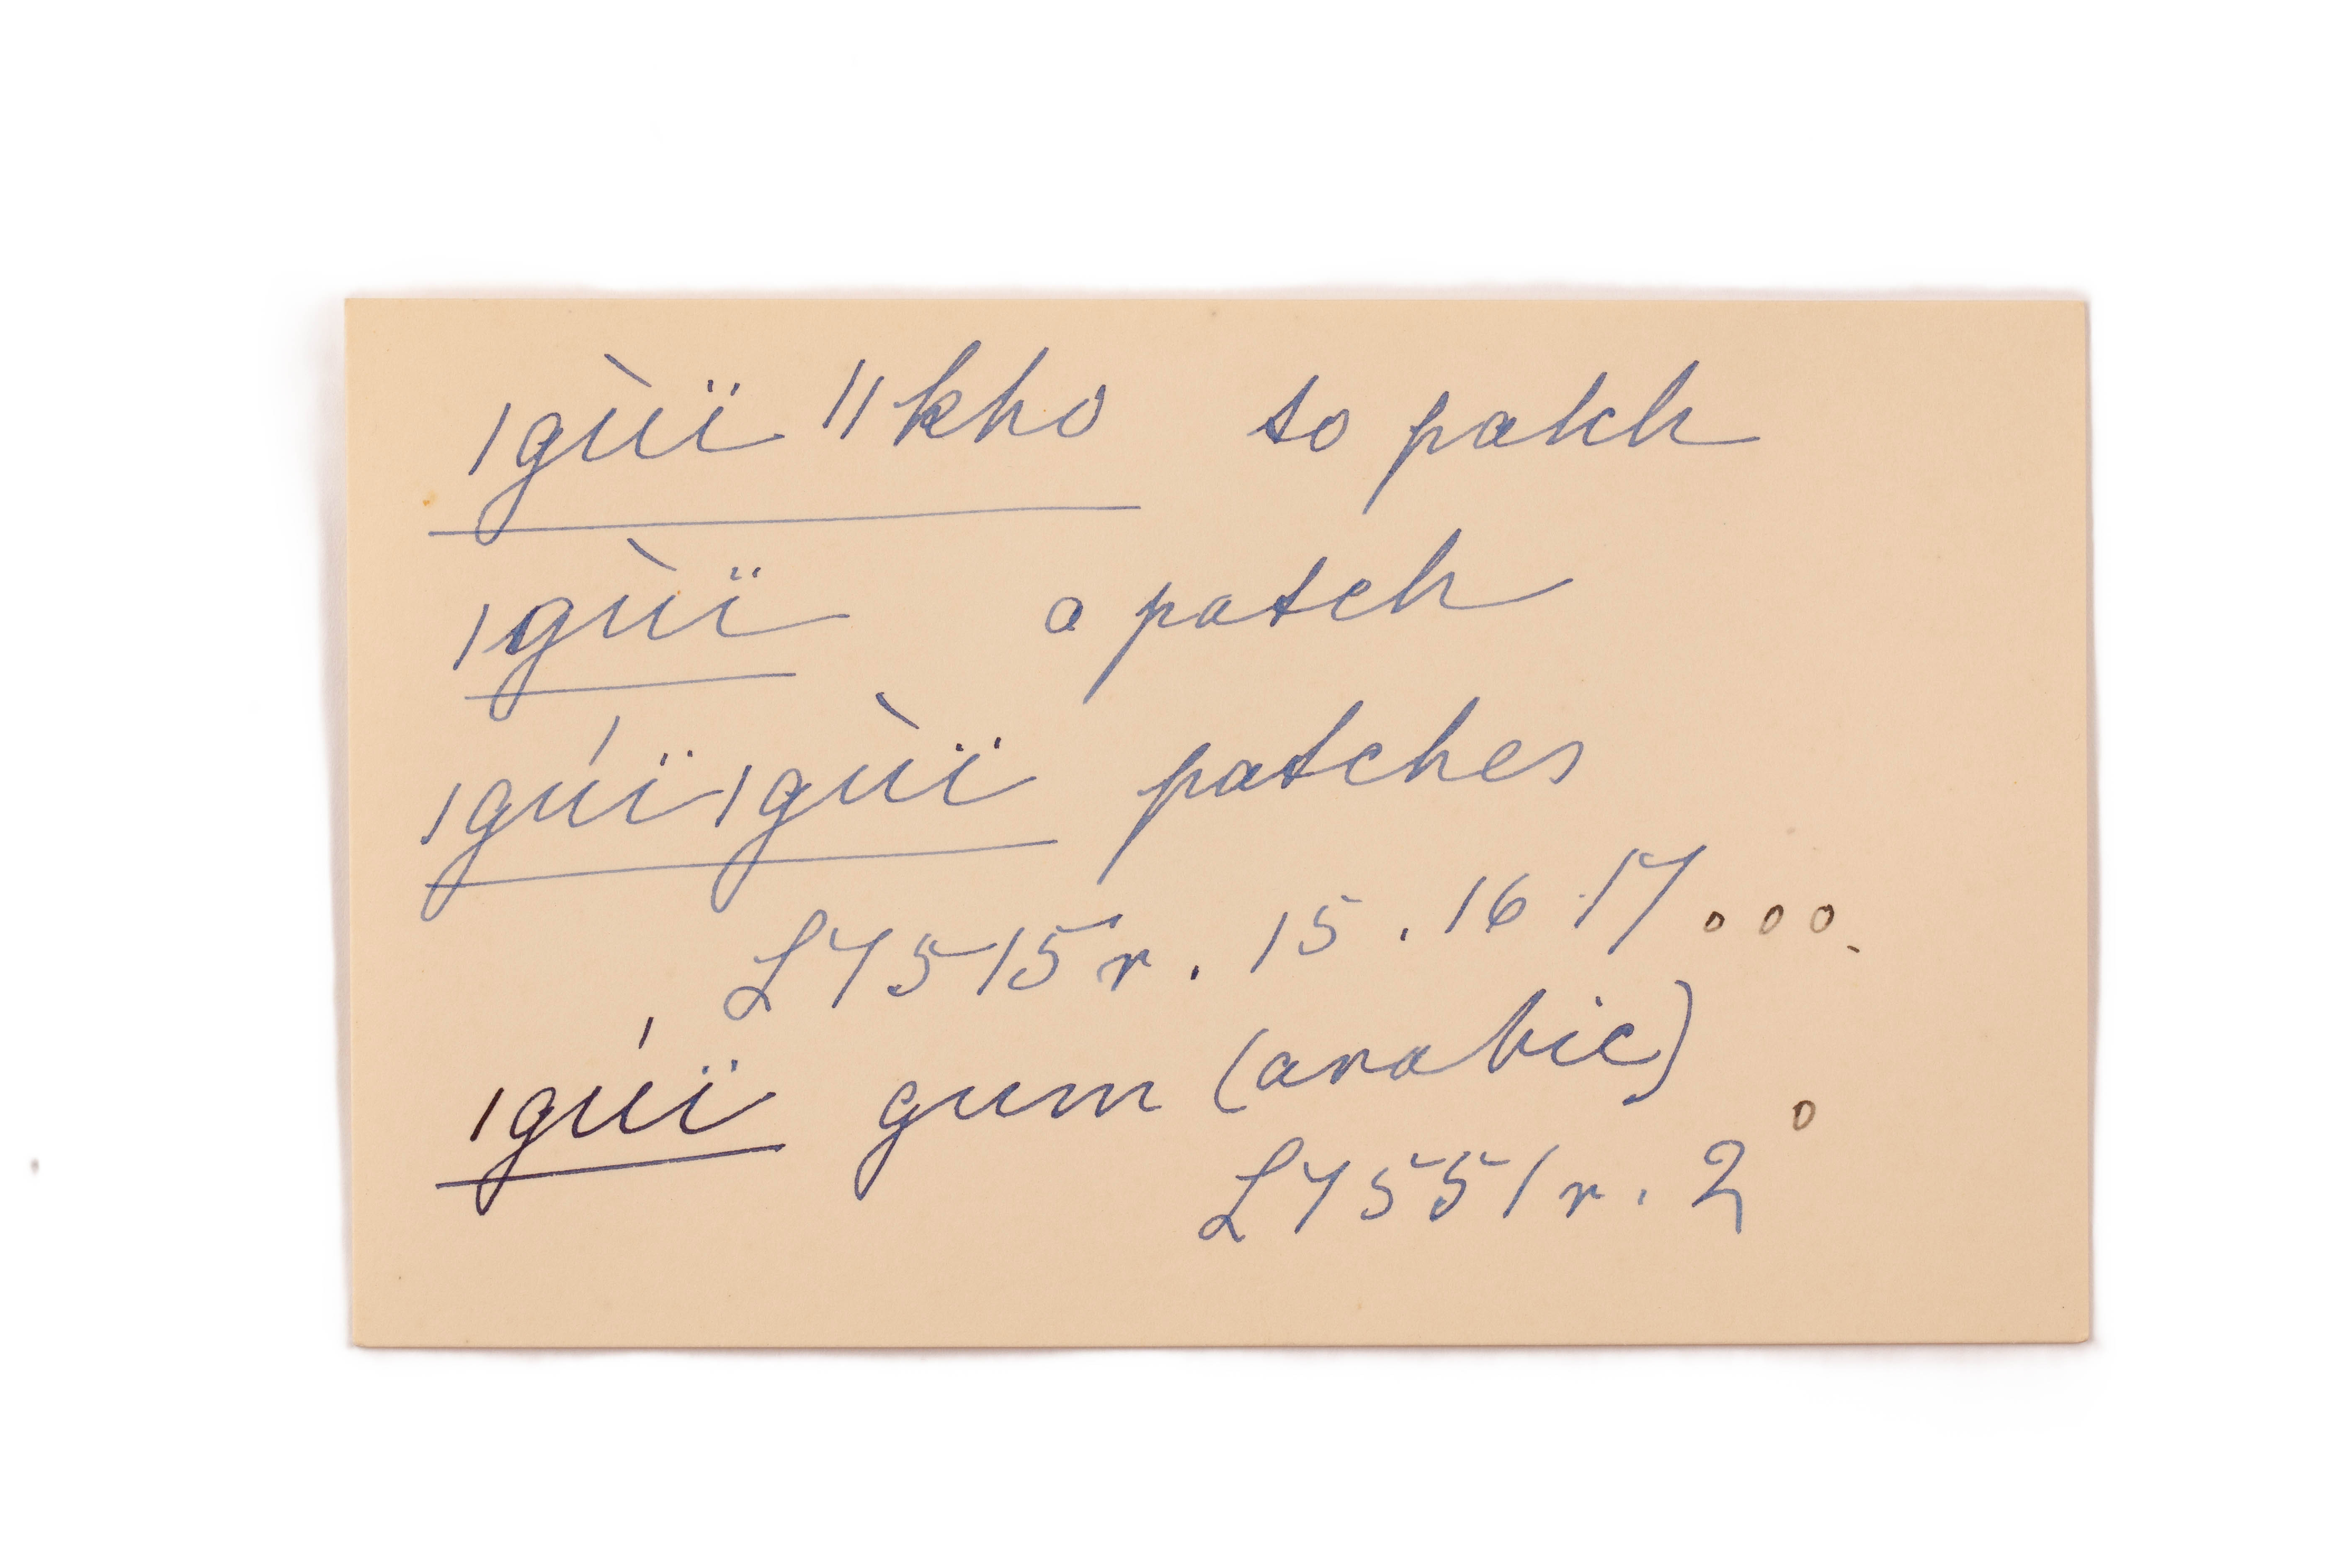 ǀgùï ǁkho to patch
ǀgùï a patch
ǀgúïǀgùï patches
L7515r. 15. 16. 17 ° ° °
ǀgúï gum (arabic)
L7551r. 2 °